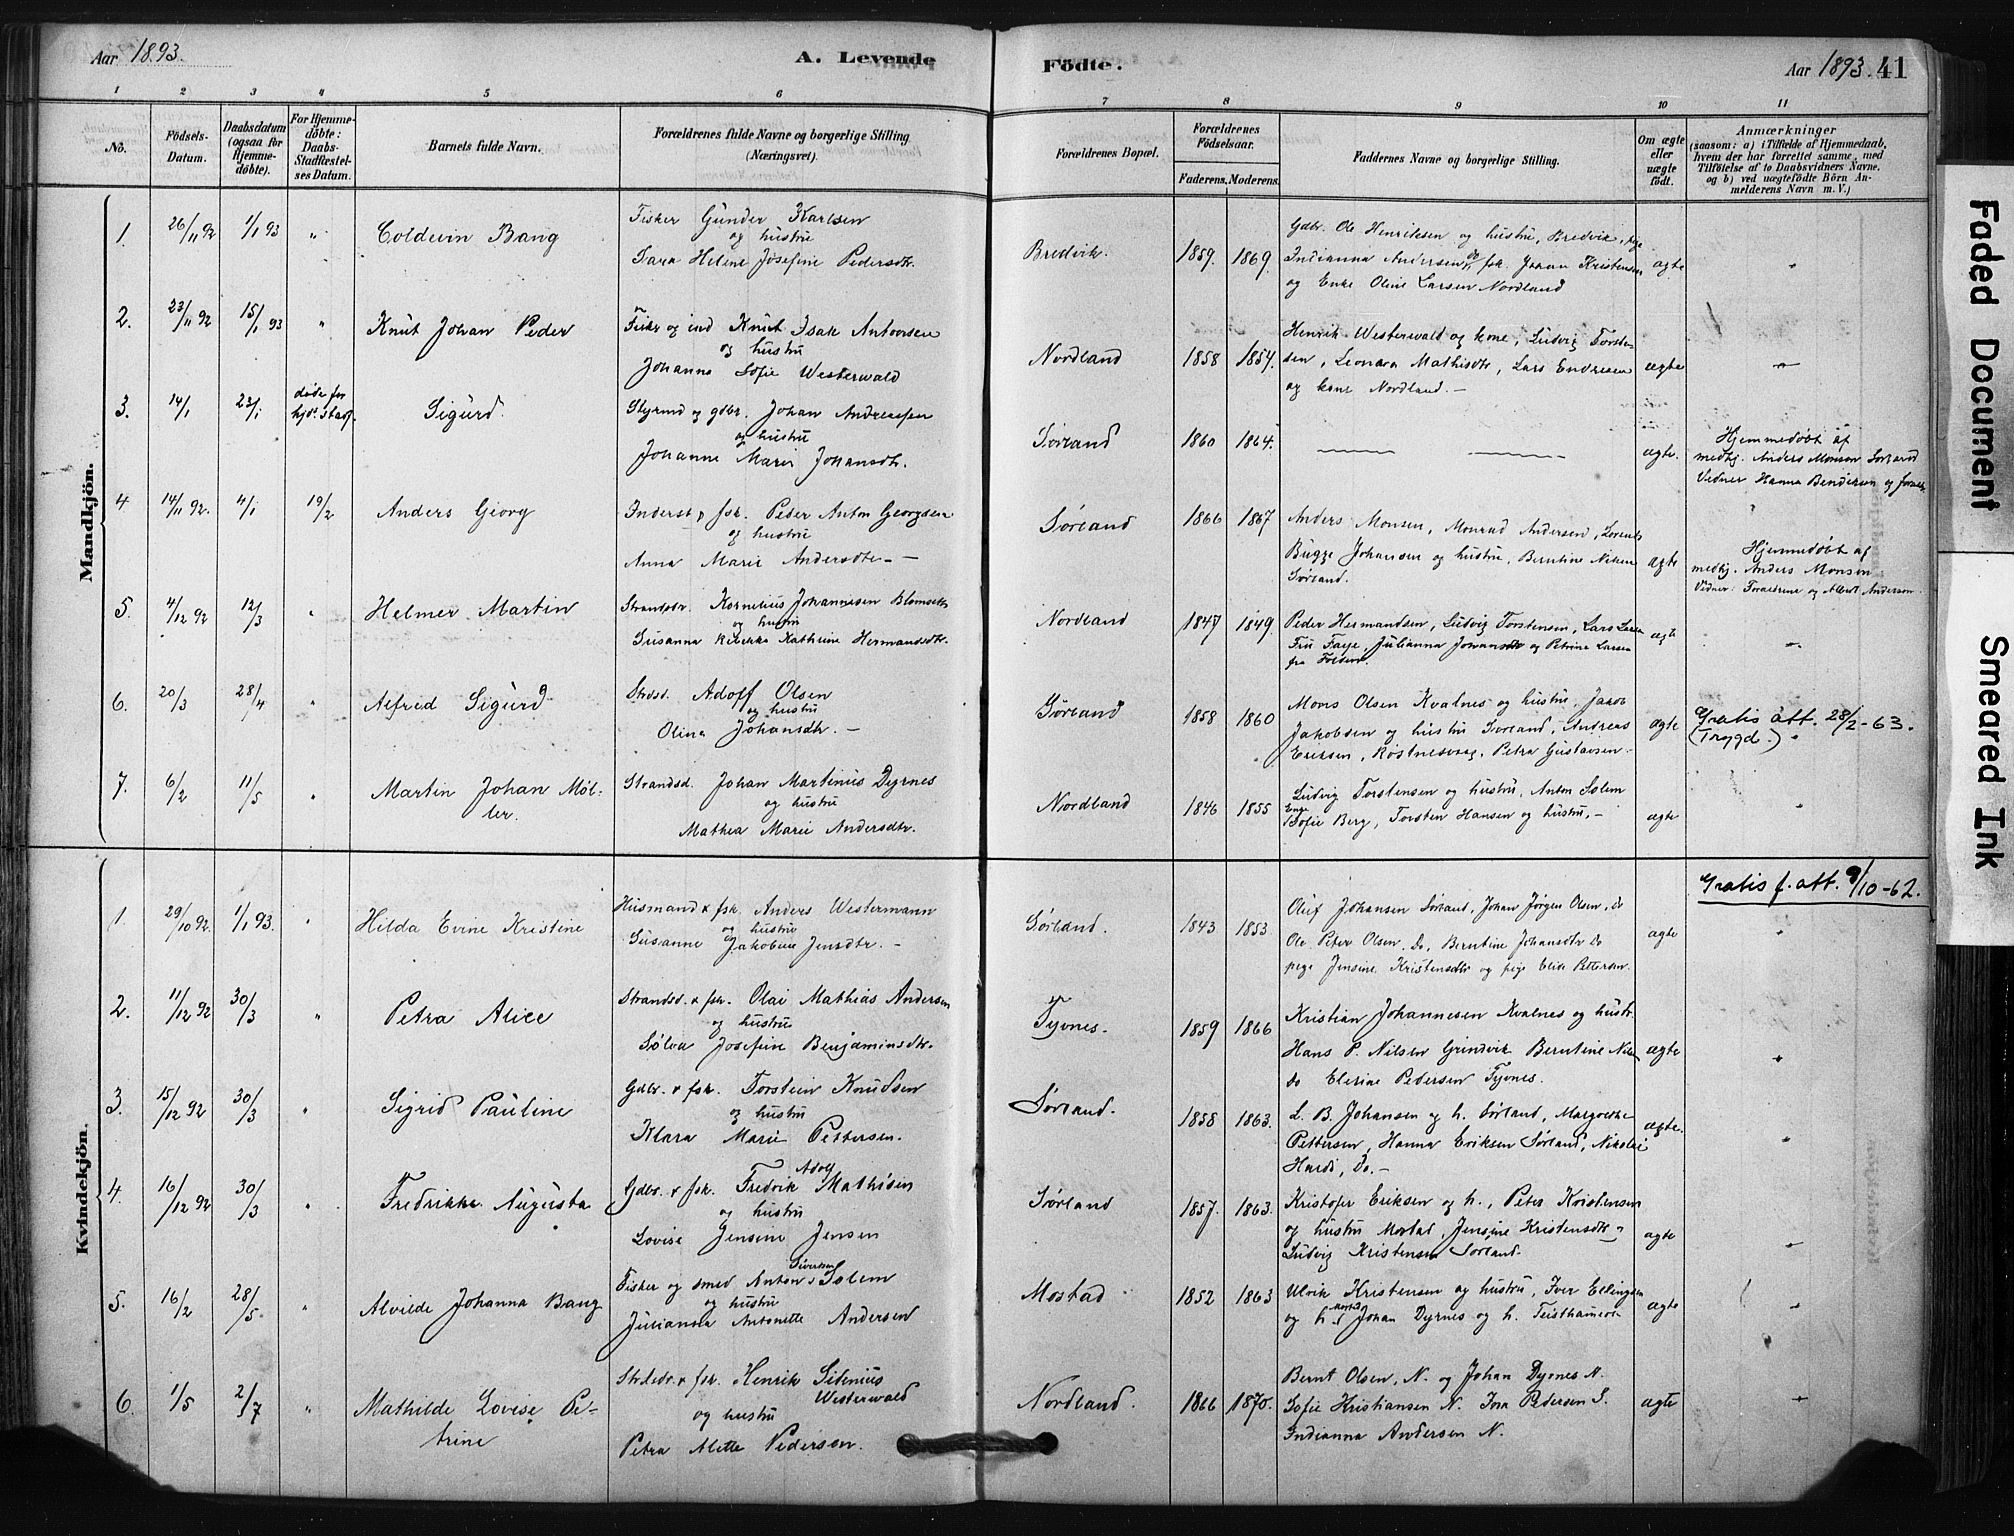 Aar 1893.
A. Levende
Födte.
Aar 1893. 41
1 2 3 4 5 6 7 8 9 10 11
No.
Födsels-
Datum.
Daabsdatum
(ogsaa for
Hjemme-
døbte).
For Hjemme-
døbte:
Daabs-
Stadfæstel-
ses Datum.
Barnets fulde Navn.
Forældrenes fulde Navne og borgerlige Stilling
(Næringsvei).
Forældrenes Bopæl.
Forældrenes
Födselsaar.
Faderens. Moderens.
Faddernes Navne og borgerlige Stilling.
Om ægte
eller
uægte
født.
Anmærkninger
(saasom: a) i Tilfælde af Hjemmedaab,
hvem der har forrettet samme, med
Tilföielse af to Daabsvidners Navne,
og b) ved uægtefödte Börn An-
melderens Navn m. V.)
Mandkjön.
1. 26/11 92 1/1 93 " Coldevin Bang
Fisker Gunder Karlsen
og hustru
Sara Helene Josefine Pedersdtr.
Bredvik. 1859. 1869.
Gdbr. Ole Henriksen og hustru, Bredvik, pige
Indianna Andersen do, fsk. Johan Kristensen
og Enke Oline Larsen Nordland
ægte "
2. 23/11 92 15/1 93 " Knut Johan Peder
Fisker og ind Knut Isak Antonsen
og hustru
Johanna Sofie Westerwald
Nordland 1858 1854.
Henrik Westerwald og kone, Ludvig Torsten-
sen, Leonara Mathisdtr, Lars Endresen
og kone Nordland. —
ægte "
3. 14/1 23/1 døde før
hjdt. stadf. Sigurd.
Styrmd og gdbr. Johan Andreassen
og hustru
Johanne Marie Johansdtr.
Sørland 1860 1864.
ægte.
Hjemmedøbt af
medhj. Anders Monsen Sørland
Vidner Hanna Bendersen og
4 14/11 92. 4/1 19/2 Anders Georg
Inderst, fsk. Peder Anton Georgsen
og hustru
Anna Marie Andersdtr. —
Sørland 1866 1867
Anders Monsen, Monrad Andersen, Lorents
Bugge Johansen og hustru, Berntine Nilsen
Sørland.
ægte
Hjemmedøbt af
medhj. Anders Monsen
Vidner: Forældrene og Albert Andersen.
5. 4/12 92 12/3 " Helmer Martin
Strandsdr. Kornelius Johannesen
og hustru
Susanna Rebekka Kathrine Hermandsdtr.
Nordland 1847 1849.
Peder Hermandsen, Ludvig Torstensen, Lars Larsen
Fru Faye, Julianna Johansdtr og Petrine Larsen
fra Folden.
ægte "
6. 20/3 28/4 " Alfred Sigurd
Strdsd. Adolf Olsen
og hustru
Olina Johansdtr. —
Sørland 1858 1860
Mons Olsen Kvalnes og hustru, Jakob
Jakobsen og hustru Sørland, Andreas
Eriksen, Røstnesvaag, Petra Gustavsen.
ægte Gratis att. 28/2-63.
(Trygd.) "
7. 6/2 11/5 " Martin Johan Møl-
ler.
Strandsd. Johan Martinus Dyrnes
og hustru
Mathea Marie Andersdtr.
Nordland 1846 1855
Ludvig Torstensen og hustru, Anton Solem
Enke Sofie Berg, Torsten Hansen og hustru, —
ægte "
Kvindekjön.
1. 29/10 92. 1/1 93. " Hilda Evine Kristine
Husmand & fsk. Anders Westermann
og hustru
Susanne Jakobine Jensdtr. —
Sørland. 1843 1853
Oluf Johansen Sørland, Johan Jørgen Olsen, do
Ole Peter Olsen, Do, Berntine Johansdtr Do
pige Jensine Kristensdtr og pige Elise Pettersen.
ægte Gratis f. att. 9/10-62.
"
2. 11/12 92 30/3 " Petra Alice
Strandsd. & fsk. Olai Mathias Andersen
og hustru
Sølva Josefine Benjaminsdtr.
Tyvnes. 1859 1866
Kristian Johannesen Kvalnes og hustr.
Hans P. Nilsen Grindvik Berntine Nils
Do Elerine Pedersen Tyvnes.
ægte "
3. 15/12 92 30/3 " Sigrid Pauline
Gdbr. & fsk. Torstein Knudsen
og hustru
Klara Marie Pettersen.
Sørland. 1858 1863.
L. B. Johansen og h. Sørland, Margrethe
Pettersen, Hanna Eriksen Sørland, Nikolai
Hardi, Do. —
ægte. "
4. 16/12 92 30/3 " Fredrikke Augusta
Gdbr. & fsk. Fredrik Adolf Mathisen
og hustru
Lovise Jensine Jensen
Sørland 1857. 1863.
Kristofer Eriksen og h., Peter Kristensen
og hustru Mostad, Jensine Kristensdtr
Ludvig Kristensen Sørland.
ægte "
5. 16/2 28/5 " Alvilde Johanna Bang
Fisker og smed Anton Sivertsen Solem
og hustru
Julianna Antonette Andersen
Mostad 1852 1863
Ulrik Kristensen og hustru, Iver Ellingsen
og h. Mostad Johan Dyrnes og h.
ægte "
6. 1/5 2/7 " Mathilde Lovise Pe-
trine
Strdsdr. & fsk. Henrik Sitenius
Westerwald
og hustru
Petra Alette Pedersen.
Nordland. 1866 1870.
Bernt Olsen, N. og Johan Dyrnes N.
Sofie Kristiansen N. Jora Pedersen S.
Indianna Andersen N.
ægte "
Faded Document
Smeared Ink